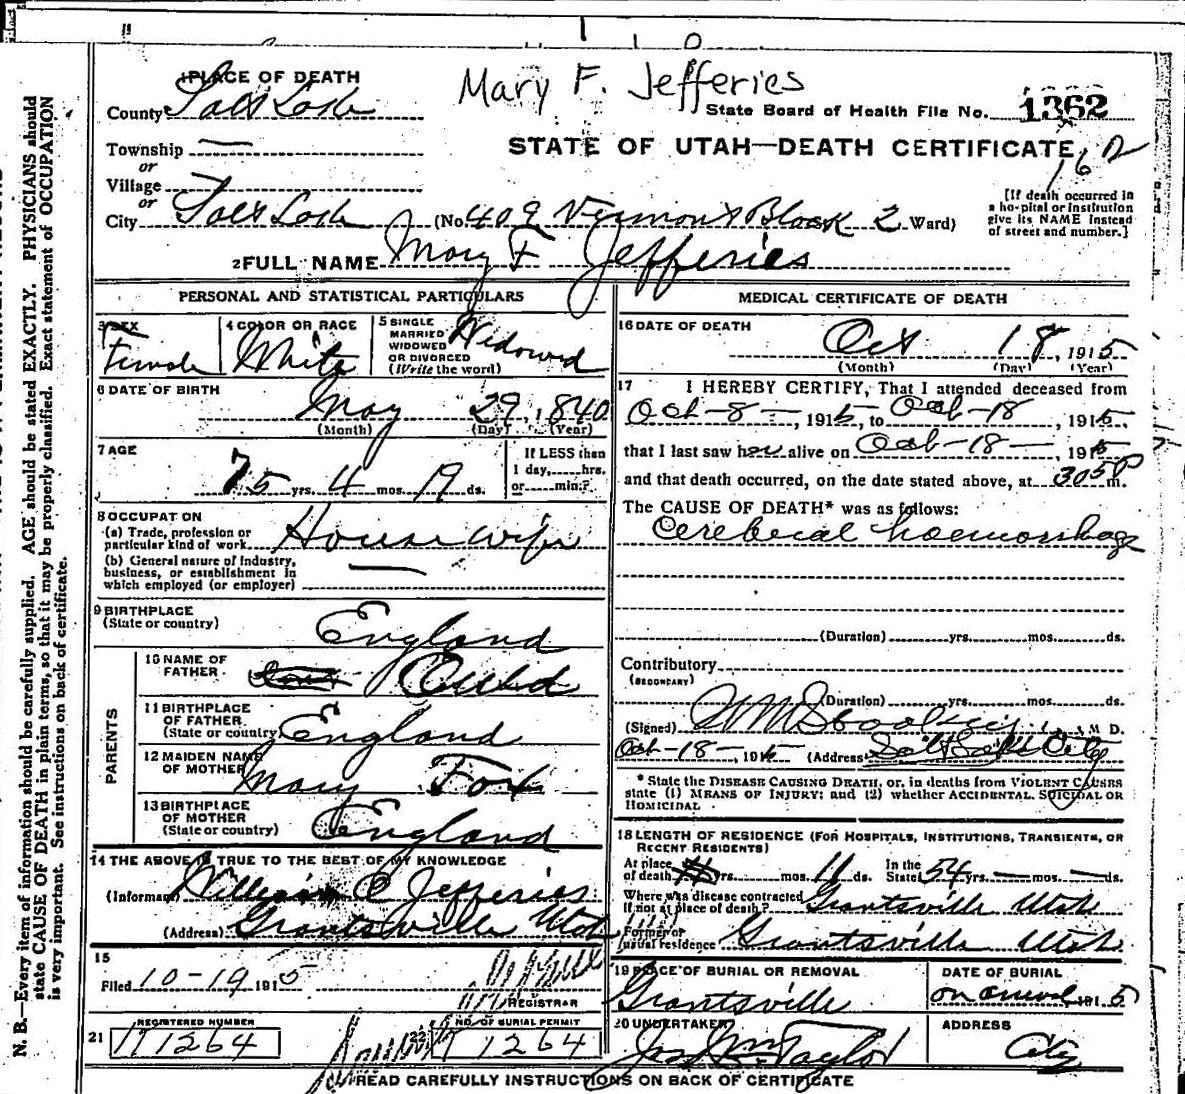 Mary F. Jefferies
1 PLACE OF DEATH
County Salt Lake
State Board of Health File No. 1362
Township —
or
STATE OF UTAH—DEATH CERTIFICATE
162
Village
or
City Salt Lake (No. 409 Vermont Block 2 Ward)
[If death occurred in
a hospital or institution
give its NAME instead
of street and number.]
2 FULL NAME Mary F Jefferies
PERSONAL AND STATISTICAL PARTICULARS
3 SEX
Female
4 COLOR OR RACE
White
5 SINGLE
MARRIED
WIDOWED
OR DIVORCED
(Write the word)
Widowed
6 DATE OF BIRTH
May 29, 1840
(Month) (Day) (Year)
7 AGE
75 yrs. 4 mos. 19 ds.
If LESS than
1 day, hrs.
or min.?
8 OCCUPATION
(a) Trade, profession or
particular kind of work
House wife
(b) General nature of Industry,
business, or establishment in
which employed (or employer)
—
9 BIRTHPLACE
(State or country)
England
PARENTS
10 NAME OF
FATHER
Ould
11 BIRTHPLACE
OF FATHER
(State or country)
England
12 MAIDEN NAME
OF MOTHER
Mary Fox
13 BIRTHPLACE
OF MOTHER
(State or country)
England
14 THE ABOVE IS TRUE TO THE BEST OF MY KNOWLEDGE
(Informant) William C Jefferies
(Address) Grantsville Utah
15
Filed 10-19 1915
REGISTRAR
REGISTERED NUMBER
NO. OF BURIAL PERMIT
21 1264
1264
MEDICAL CERTIFICATE OF DEATH
16 DATE OF DEATH
Oct 18, 1915
(Month) (Day) (Year)
17 I HEREBY CERTIFY, That I attended deceased from
Oct-8—, 1915, to Oct-18, 1915,
that I last saw her alive on Oct-18—, 1915
and that death occurred, on the date stated above, at 305 P m.
The CAUSE OF DEATH* was as follows:
Cerebral haemorrhage
(Duration) yrs. mos. ds.
Contributory
(SECONDARY)
(Duration) yrs. mos. ds.
(Signed) M D.
Oct-18-, 1915 (Address) Salt Lake City
* State the DISEASE CAUSING DEATH, or, in deaths from VIOLENT CAUSES
state (1) MEANS OF INJURY; and (2) whether ACCIDENTAL, SUICIDAL OR
HOMICIDAL
18 LENGTH OF RESIDENCE (FOR HOSPITALS, INSTITUTIONS, TRANSIENTS, OR
RECENT RESIDENTS)
At place
of death yrs. mos. 11 ds.
In the
State 54 yrs. — mos. — ds.
Where was disease contracted
If not at place of death? Grantsville Utah
Former or
usual residence Grantsville Utah
19 PLACE OF BURIAL OR REMOVAL
Grantsville
DATE OF BURIAL
on arrival, 1915
20 UNDERTAKER
Jos Wm Taylor
ADDRESS
City
READ CAREFULLY INSTRUCTIONS ON BACK OF CERTIFICATE
N. B.—Every item of information should be carefully supplied. AGE should be stated EXACTLY. PHYSICIANS should
state CAUSE OF DEATH in plain terms, so that it may be properly classified. Exact statement of OCCUPATION
is very important. See instructions on back of certificate.